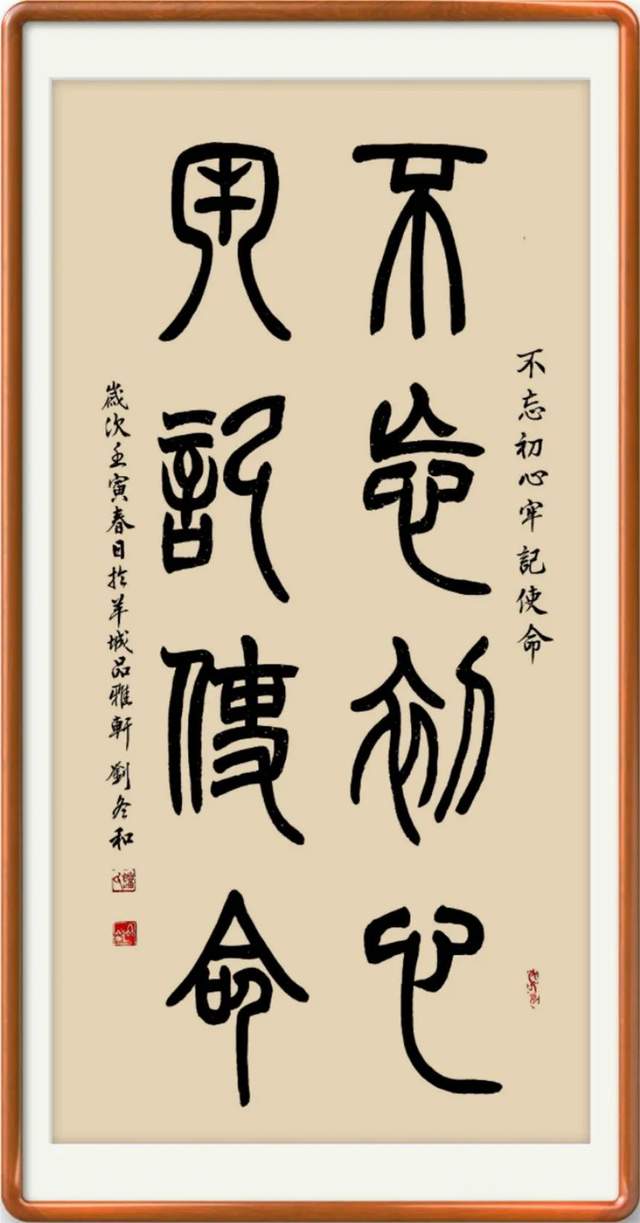 不忘初心牢記使命
不忘初心
牢記使命
歲次壬寅春日於羊城品雅軒 劉冬和